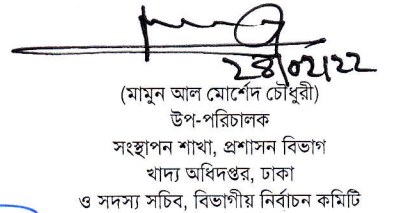 ২৪/০২/২২
(মামুন আল মোর্শেদ চৌধুরী)
উপ-পরিচালক
সংস্থাপন শাখা, প্রশাসন বিভাগ
খাদ্য অধিদপ্তর, ঢাকা
ও সদস্য সচিব, বিভাগীয় নির্বাচন কমিটি